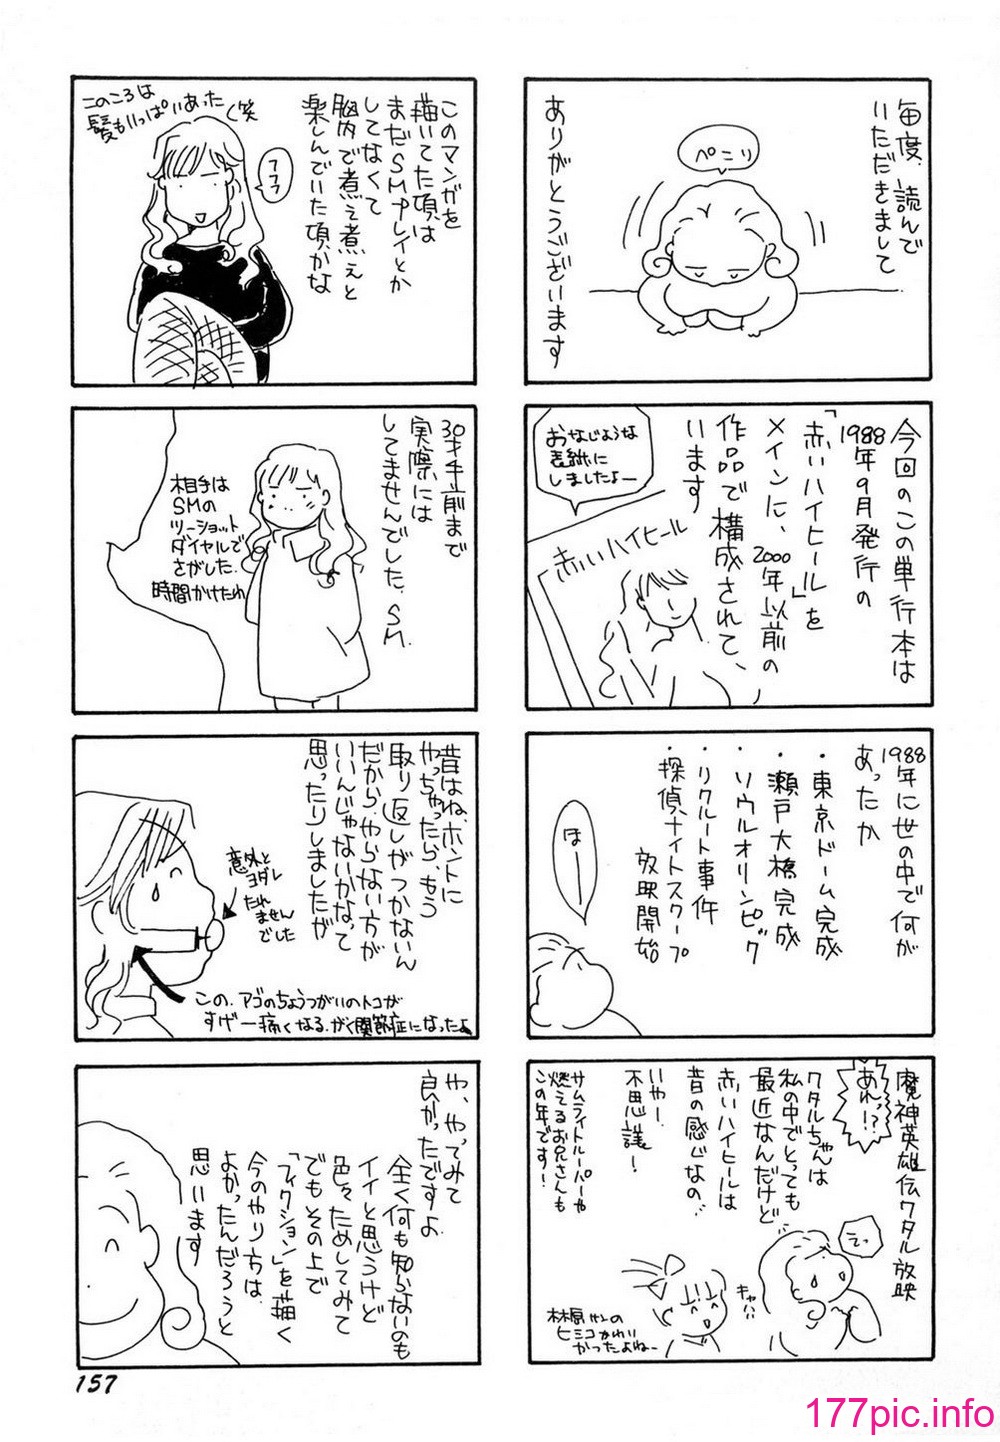 毎度、読んで
いただきまして
ペこり
ありがとうございます
今回のこの単行本は
1988年9月発行の
「赤いハイヒール」を
メインに、2000年以前の
作品で構成されて、
います
おなじような
表紙に
しましたよー
赤いハイヒール
1988年に世の中で何が
あったか
・東京ドーム完成
・瀬戸大橋完成
・ソウルオリンピック
・リクルート事件
・探偵ナイトスクープ
放映開始
ほーー
魔神英雄伝ワタル放映
あれっ!?
ワタルちゃんは
私の中でとっても
最近なんだけど
赤いハイヒールは
昔の感じなの‥
いやー!
不思議!
サムライトルーパーや
燃えるお兄さんも
この年です!
そっ
キャハハ
林原サンの
ヒミコかわい
かったよねー
このマンガを
描いてた頃は
まだSMプレイとか
してなくて
脳内で煮え煮えと
楽しんでいた頃かな
フフフ
このころは
髪もいっぱいあった
く笑
30才手前まで
実際には
してませんでした、SM.
相手は
SMの
ツーショット
ダイヤルで
さがした.
時間かけたわ
昔はね、ホントに
やっちゃったら、もう
取り返しがつかないん
だから、やらない方が
いいんじゃないかなって
思ったりしましたが
意外と
ヨダレ
たれ
ませんでした
この、アゴのちょうつがいのトコが
すげー痛くなる.がく関節症になったよ
や、やってみて
良かったですよ
全く何も知らないのも
イイと思うけど
色々ためしてみて
でもその上で
「フィクション」を描く
今のやり方は
よかったんだろうと
思います
157
177pic.info